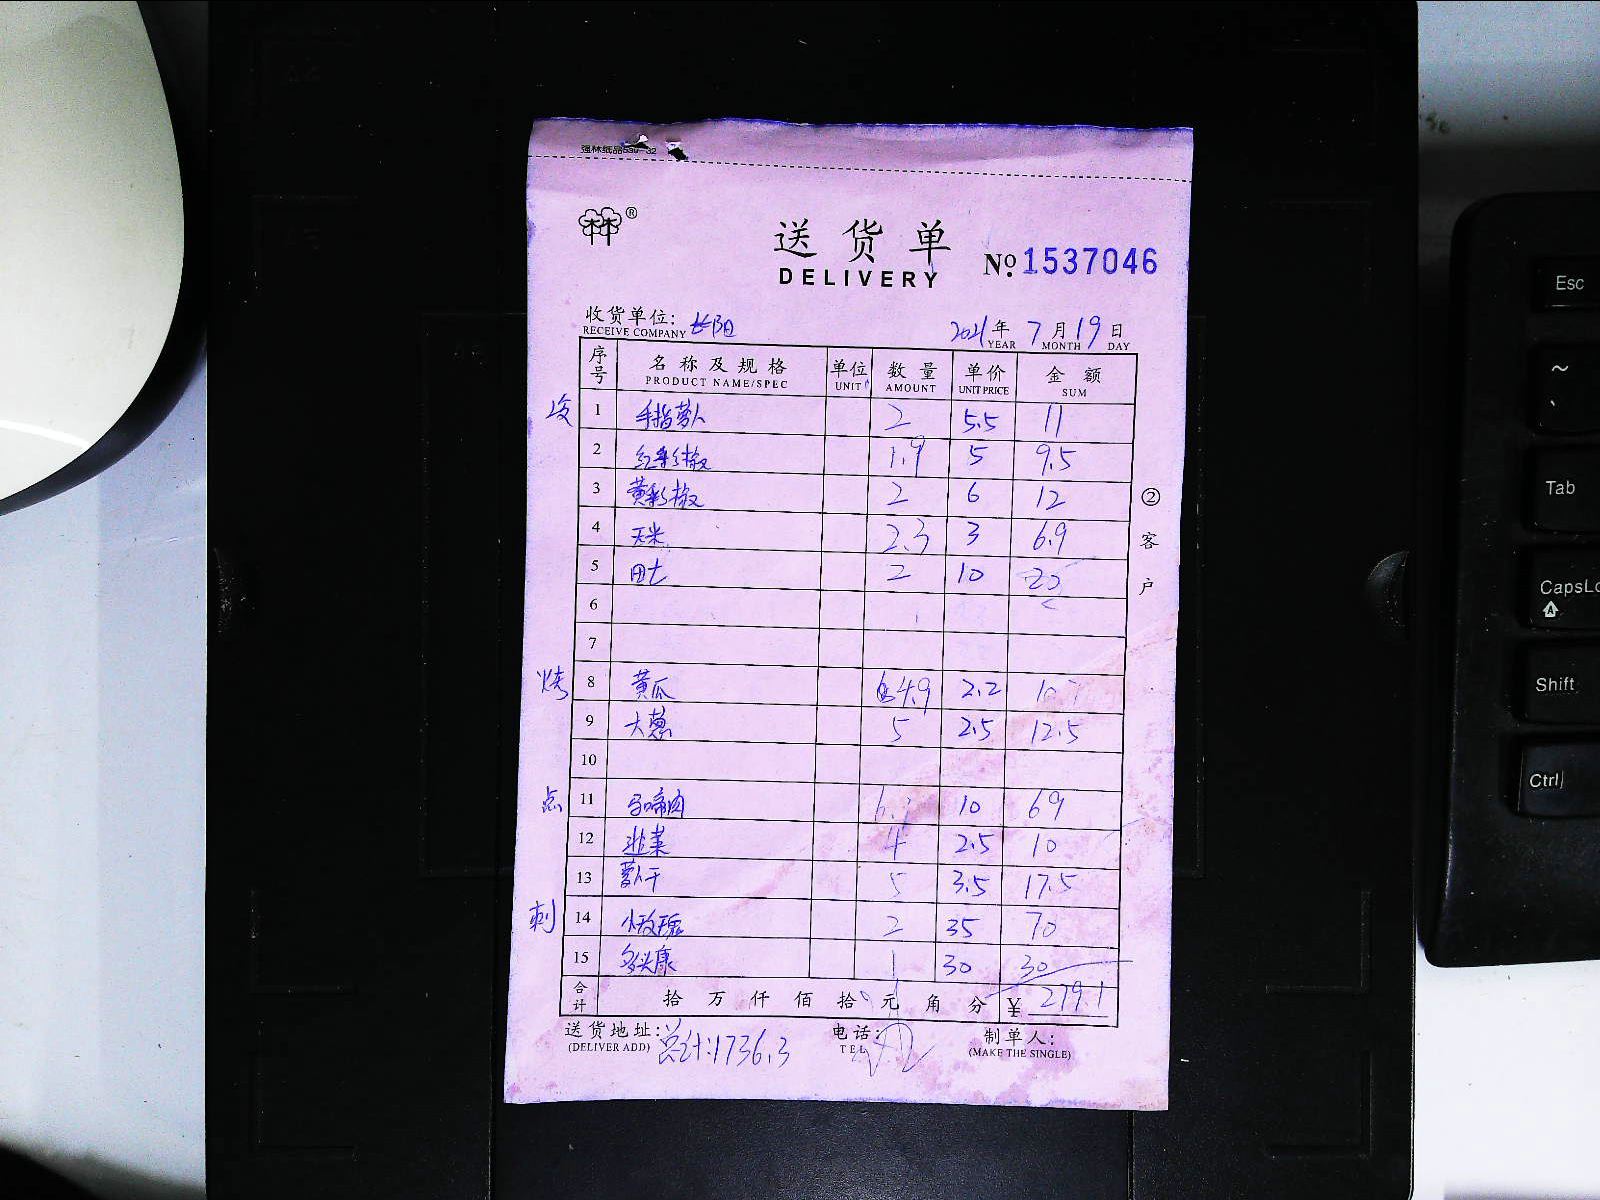 强林纸品530-32
林®
送货单
DELIVERY
№ 1537046
收货单位: 长阳 2021年7月19日
RECEIVE COMPANY YEAR MONTH DAY
序号 名称及规格 单位 数量 单价 金额
PRODUCT NAME/SPEC UNIT AMOUNT UNIT PRICE SUM
1 手指萝卜 2 5.5 11
2 红彩椒 1.9 5 9.5
3 黄彩椒 2 6 12
4 玉米 2.3 3 6.9
5 田七 2 10 20
6
7
烤 8 黄瓜 4.9 2.2 10.7
9 大葱 5 2.5 12.5
10
点 11 马啼肉 6.9 10 69
12 韭菜 4 2.5 10
13 萝卜干 5 3.5 17.5
刺 14 小玫瑰 2 35 70
15 多头康 1 30 30
合计 拾万仟佰拾元角分 ¥ 279.1
②客户
送货地址: 总计:1736.3 电话: 制单人:
(DELIVER ADD) TEL (MAKE THE SINGLE)
Esc
~
Tab
CapsLo
Shift
Ctrl